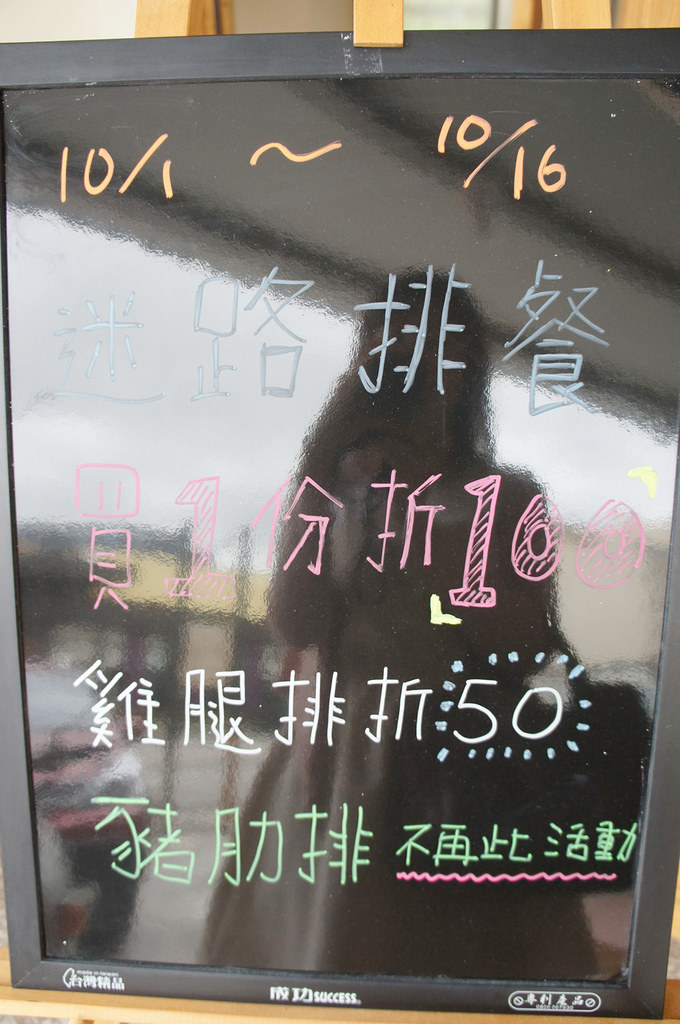 10/1 ~ 10/16
迷路排餐
買1份折100
雞腿排折50
豬肋排 不再此活動
made in taiwan
台灣精品
成功 SUCCESS
專利產品